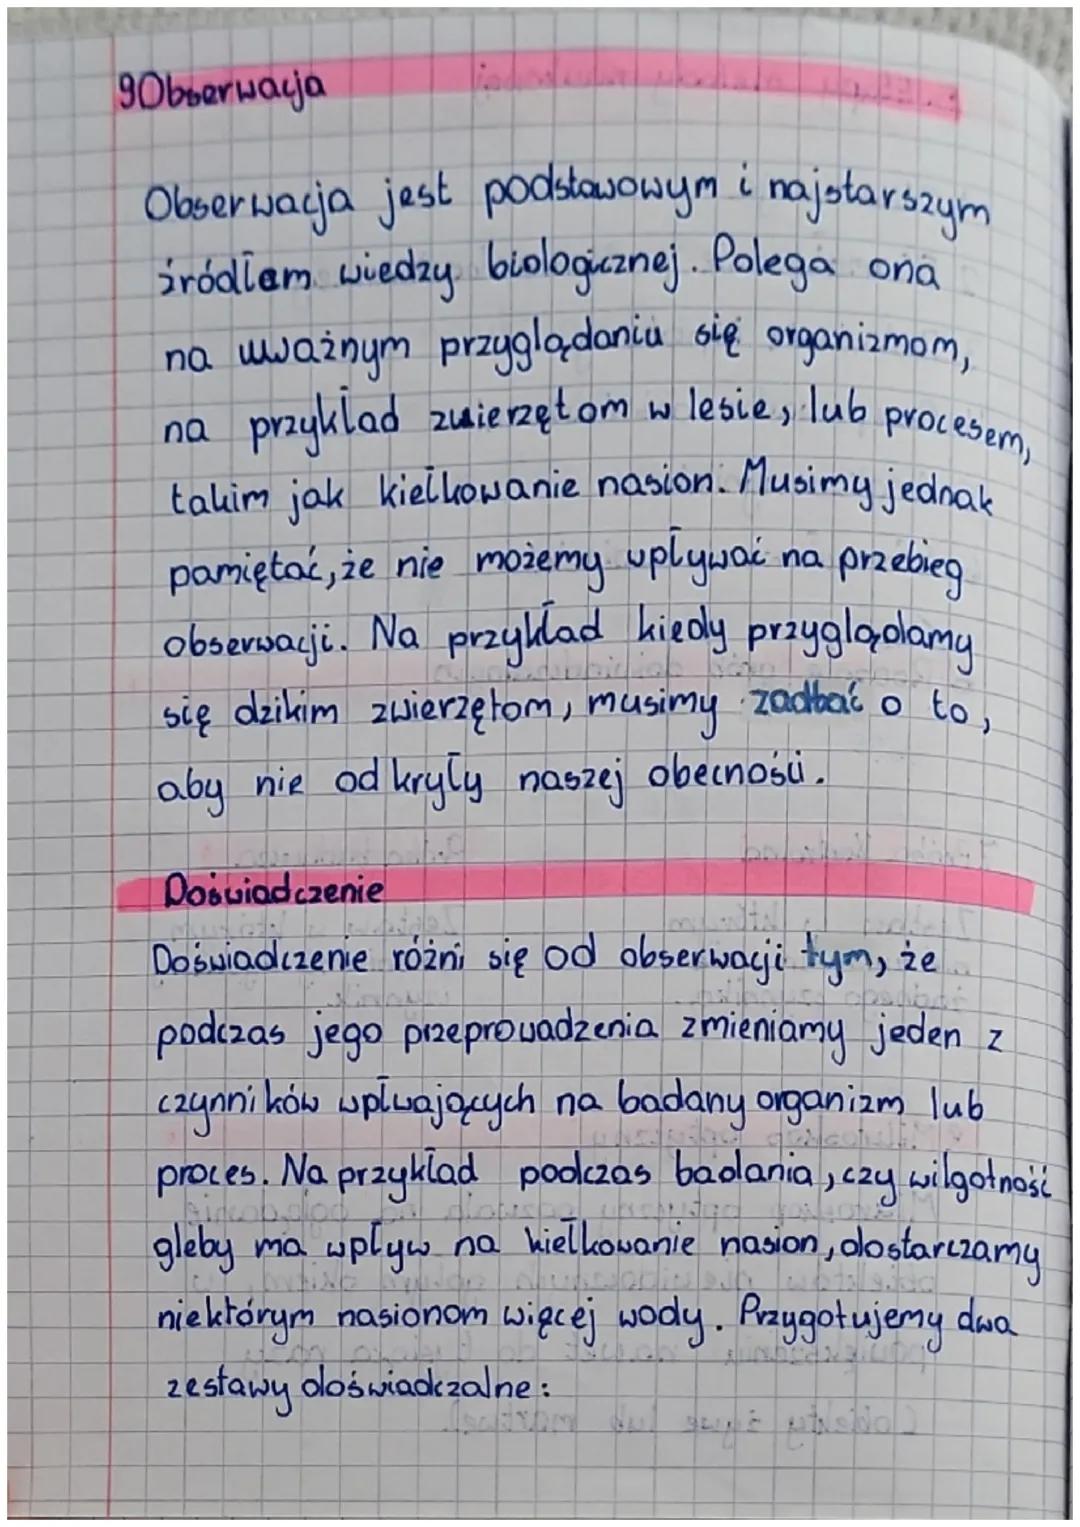 9Obserwacja
Obserwacja jest podstawowym i najstarszym
źródłem wiedzy biologicznej. Polega ona
na uważnym przyglądaniu się organizmom,
na przykład zwierzętom w lesie, lub procesem,
takim jak kiełkowanie nasion. Musimy jednak
pamiętać, że nie możemy wpływać na przebieg
obserwacji. Na przykład kiedy przyglądamy
się dzikim zwierzętom, musimy zadbać o to,
aby nie odkryły naszej obecności.
Doświadczenie
Doświadczenie różni się od obserwacji tym, że
podczas jego przeprowadzenia zmieniamy jeden z
czynników wpłwających na badany organizm lub
proces. Na przykład podczas badania, czy wilgotność
gleby ma wpływ na kiełkowanie nasion, dostarczamy
niektórym nasionom więcej wody. Przygotujemy dwa
zestawy doświadczalne: